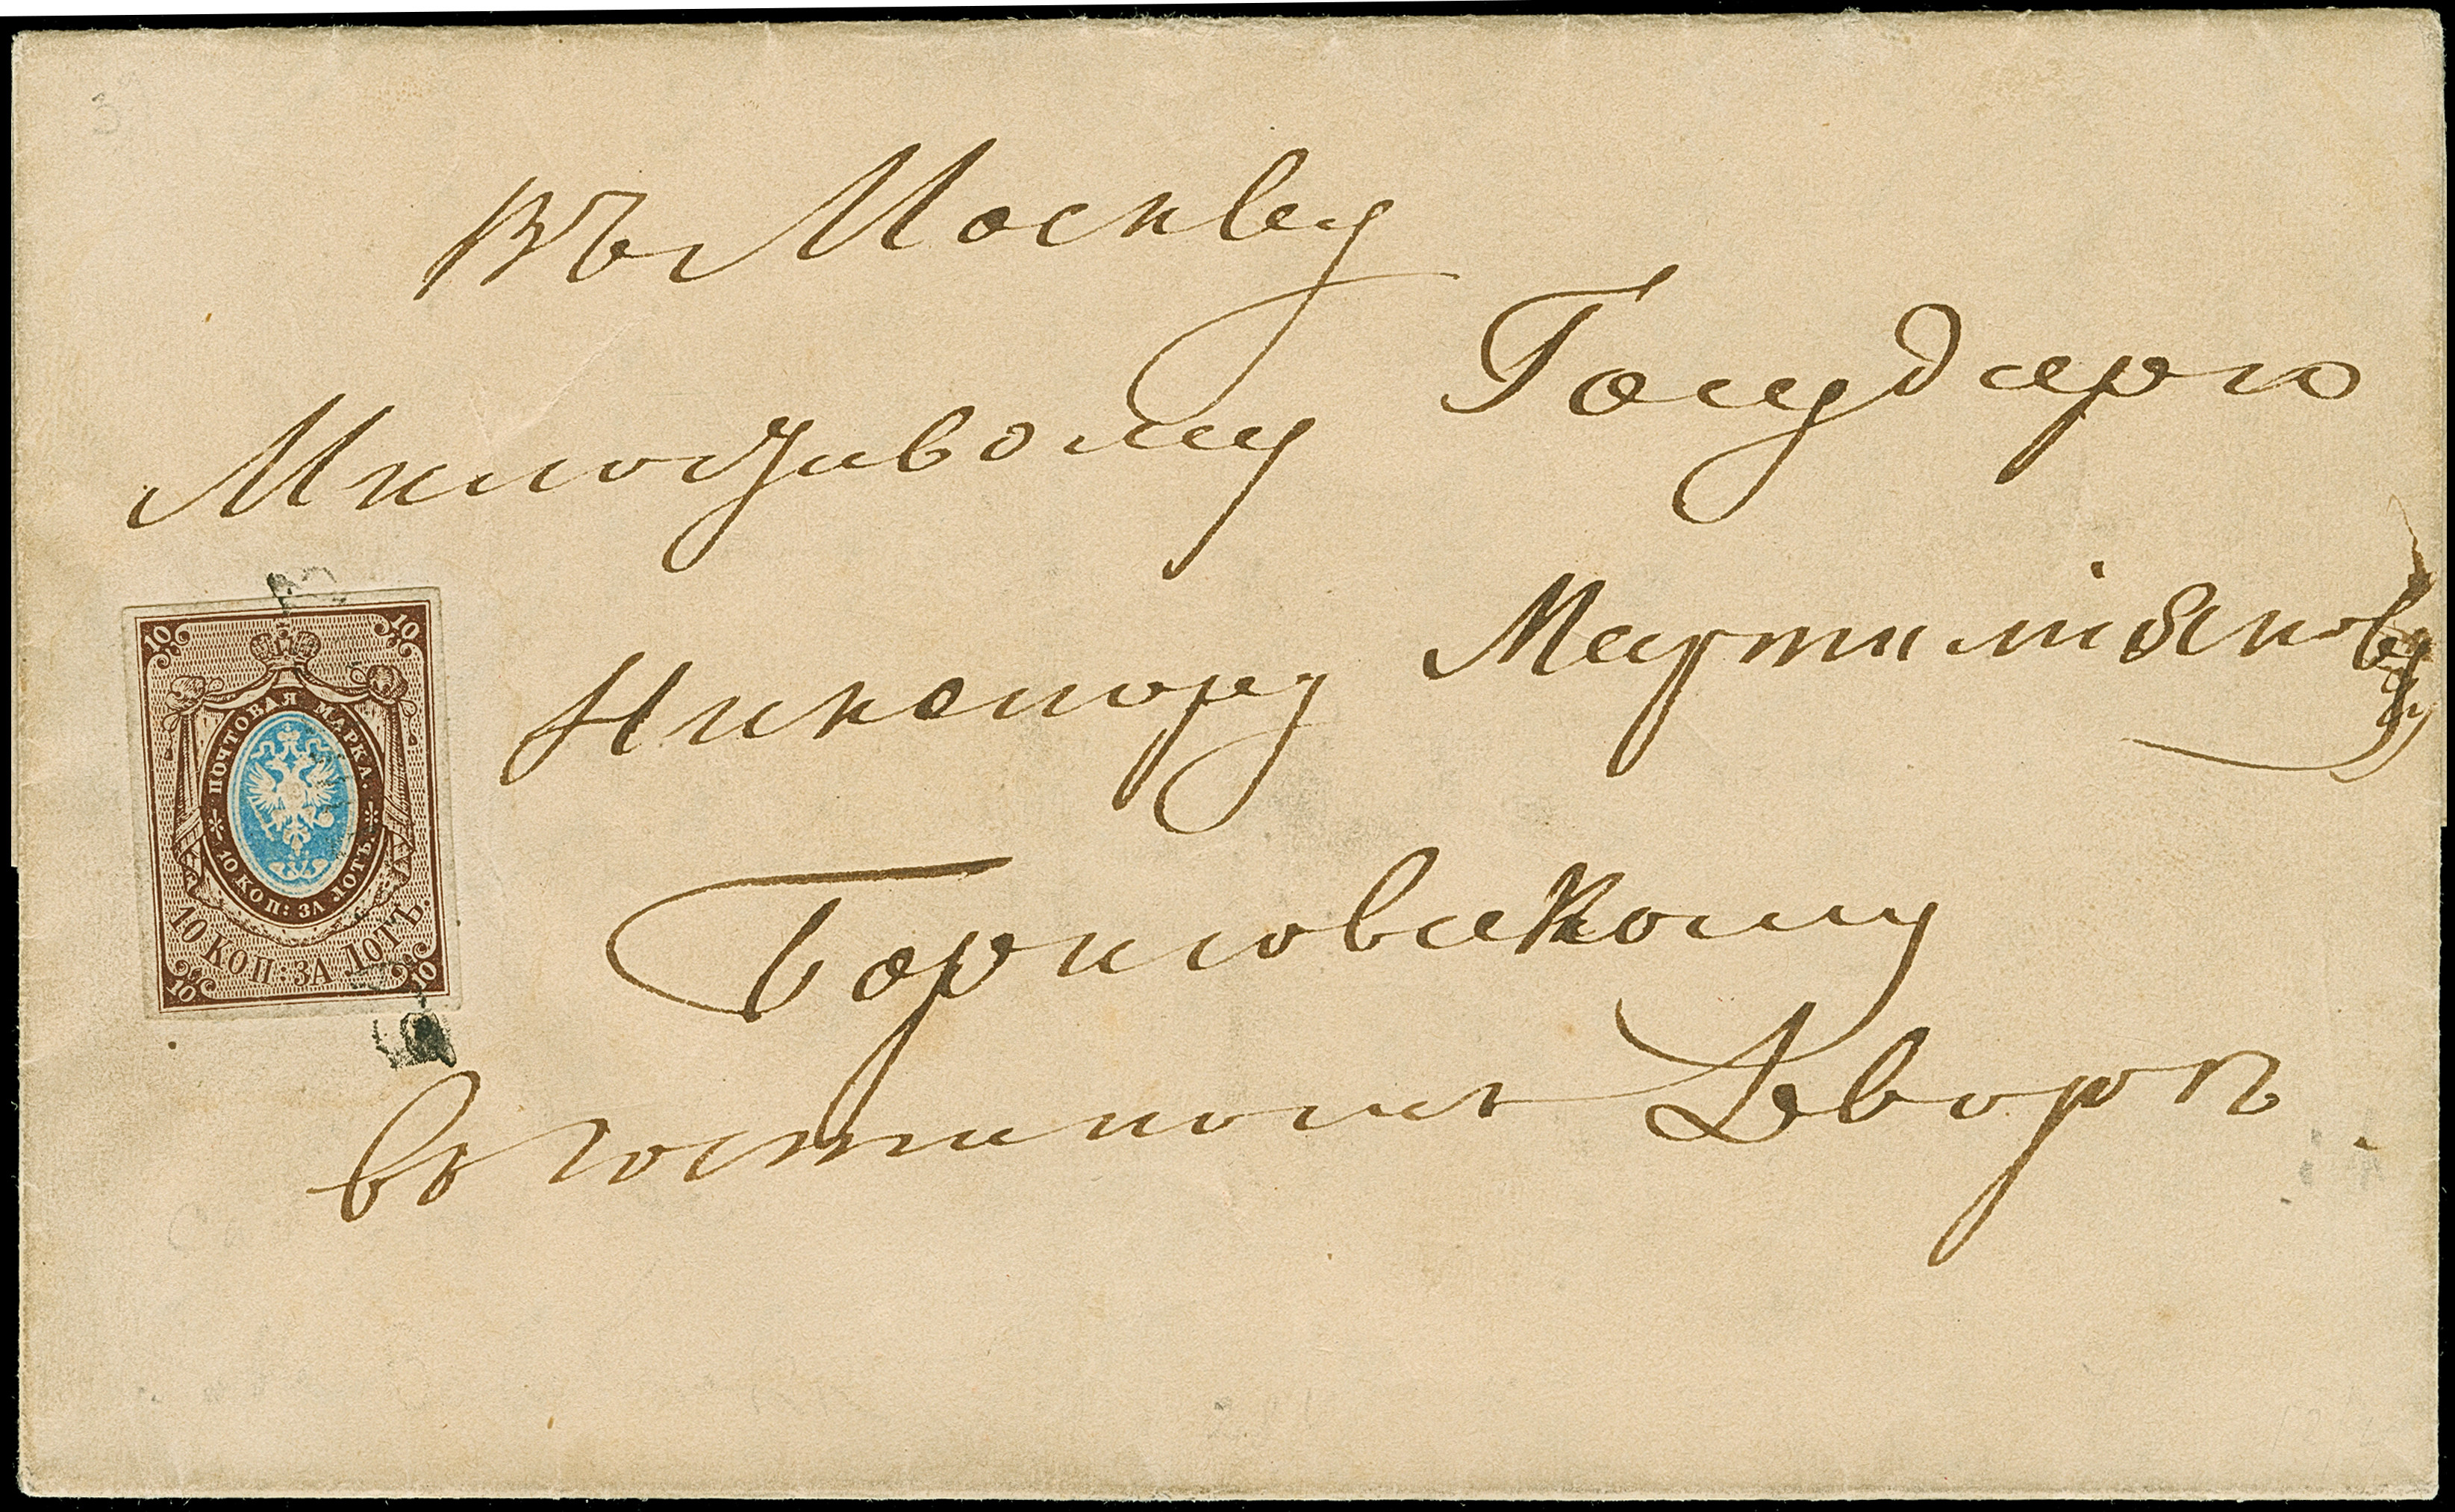 Въ Москву
Милостивому Государю
Никонору Мартиміяновичу
Борисовскому
въ гостиномъ Дворѣ.
10 10
ПОЧТОВАЯ МАРКА.
10 КОП: ЗА ЛОТЪ.
10 КОП: ЗА ЛОТЪ.
10 10